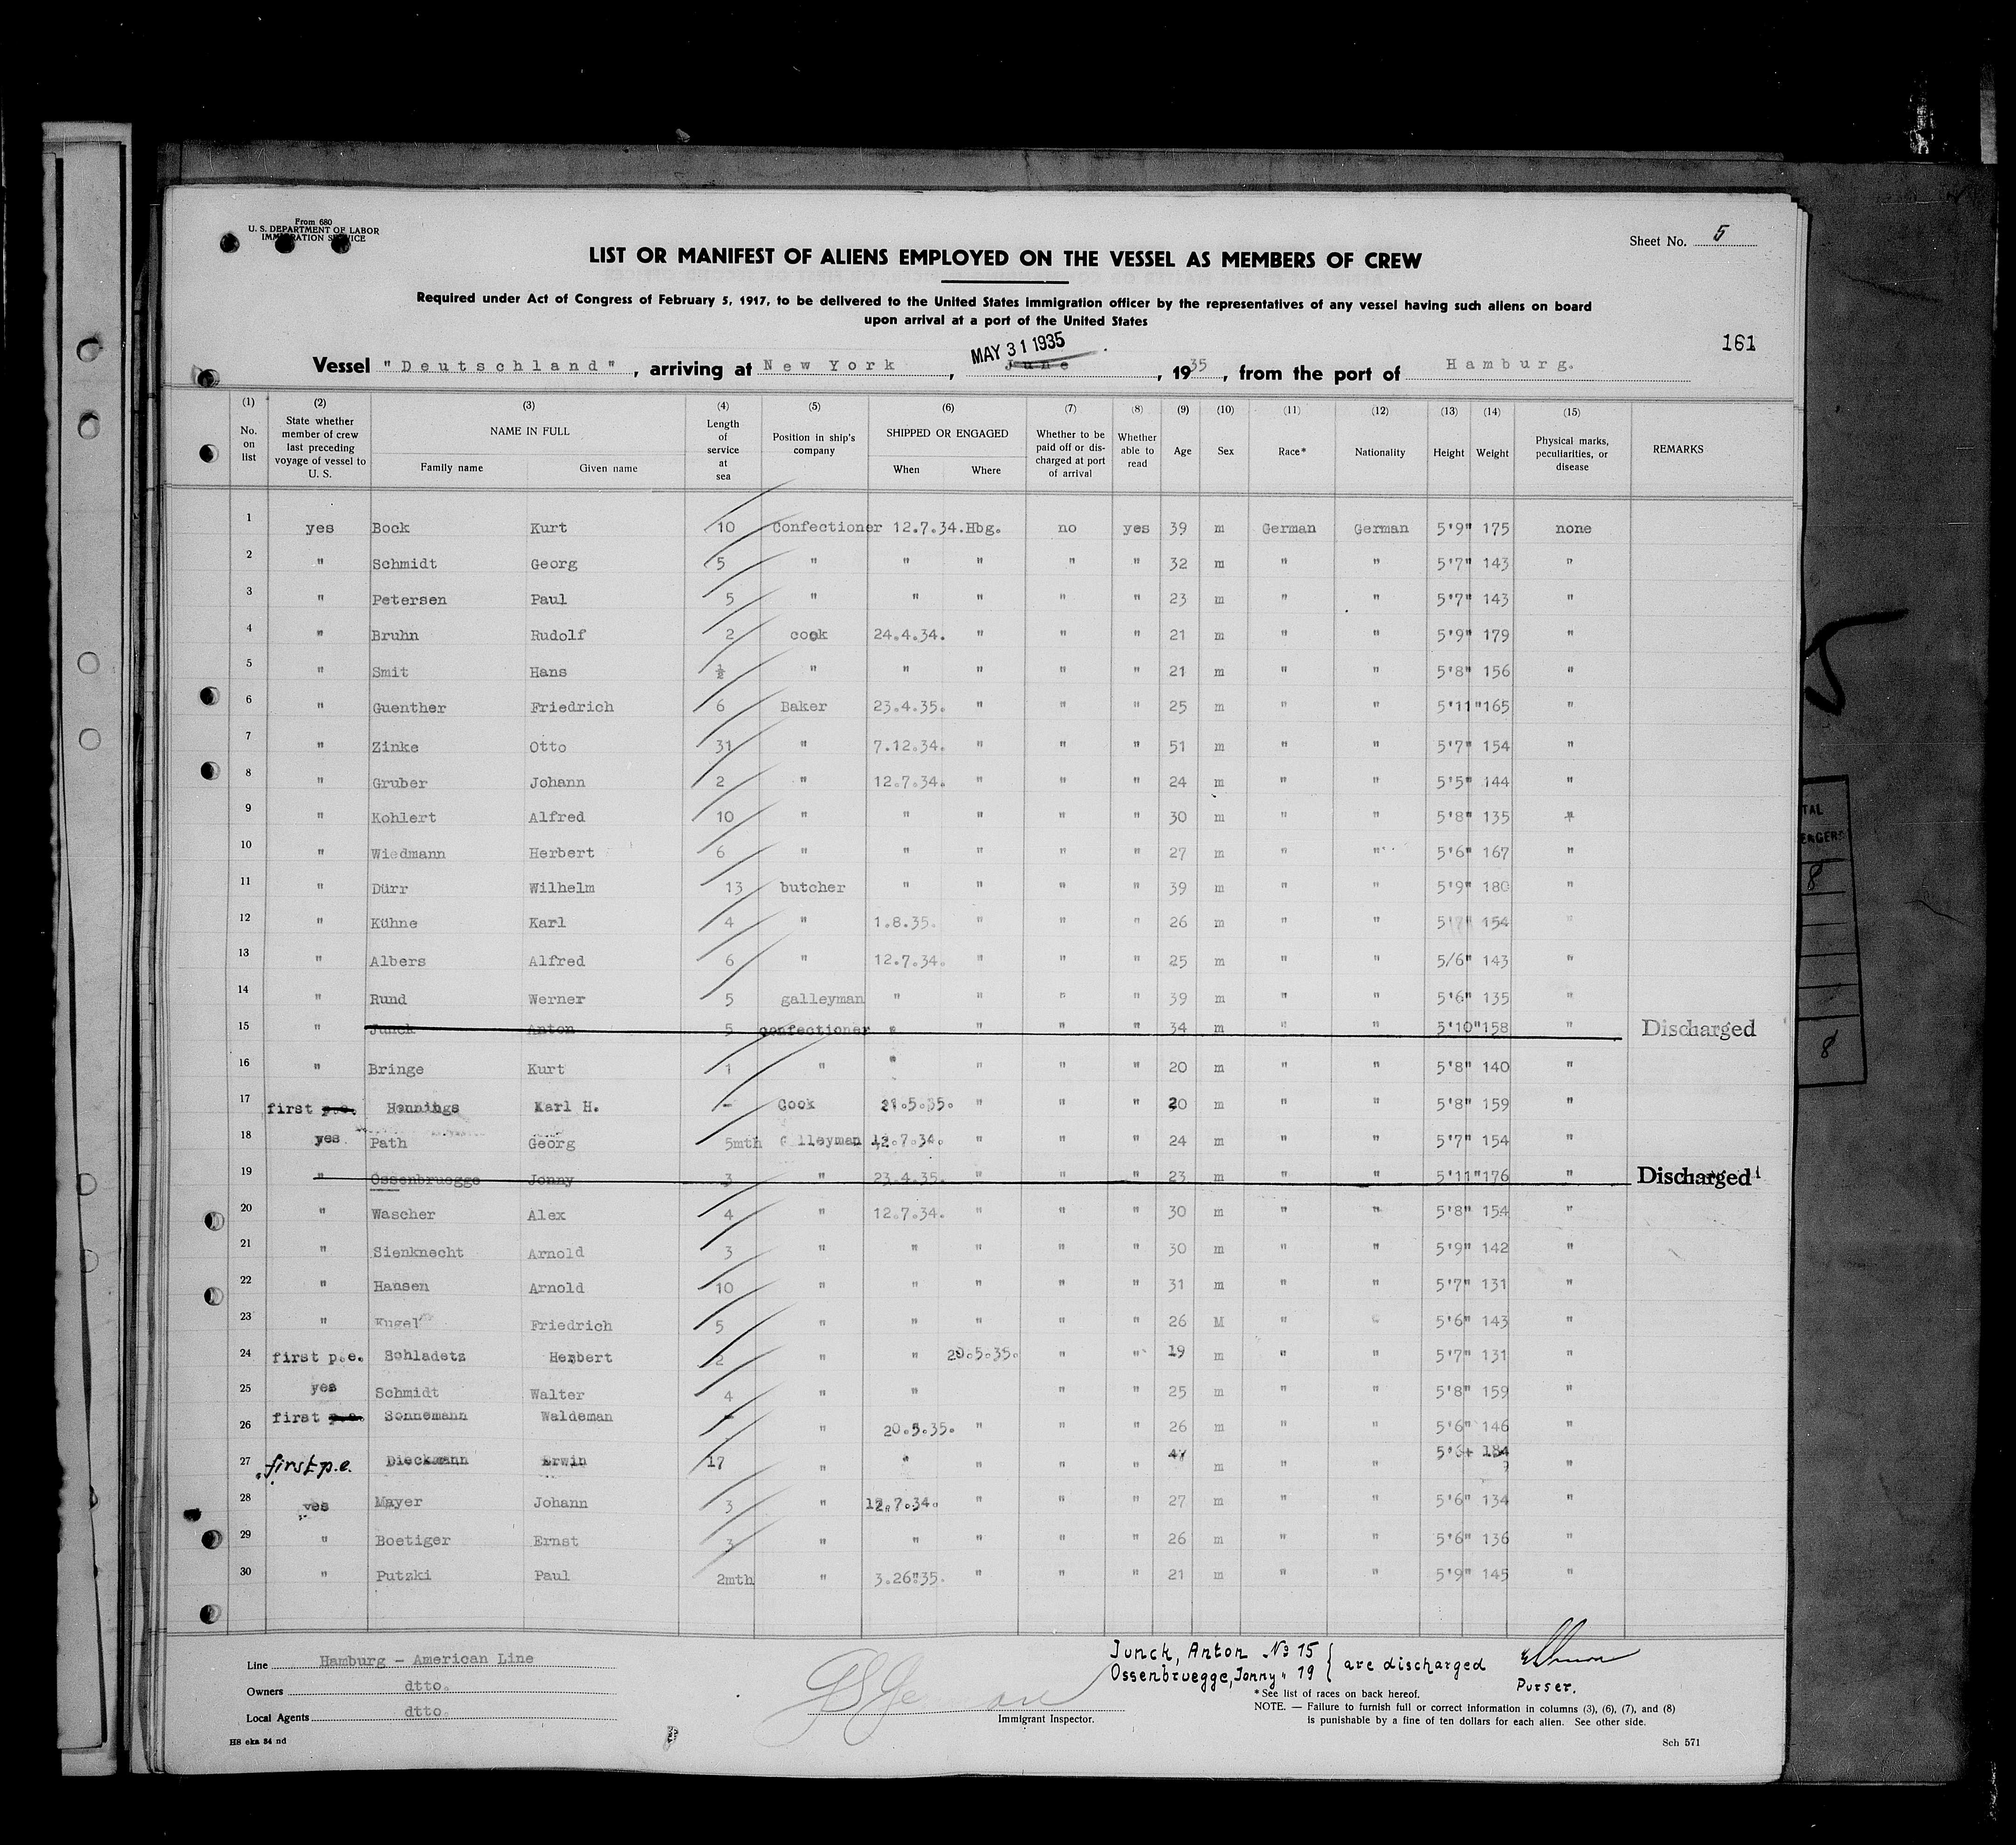 From 680
U. S. DEPARTMENT OF LABOR
IMMIGRATION SERVICE
Sheet No. 5
LIST OR MANIFEST OF ALIENS EMPLOYED ON THE VESSEL AS MEMBERS OF CREW
Required under Act of Congress of February 5, 1917, to be delivered to the United States immigration officer by the representatives of any vessel having such aliens on board
upon arrival at a port of the United States
161
MAY 31 1935
Vessel "Deutschland", arriving at New York, June, 1935, from the port of Hamburg.
(1) (2) (3) (4) (5) (6) (7) (8) (9) (10) (11) (12) (13) (14) (15)
No. on list State whether member of crew last preceding voyage of vessel to U. S. NAME IN FULL Family name Given name Length of service at sea Position in ship's company SHIPPED OR ENGAGED When Where Whether to be paid off or discharged at port of arrival Whether able to read Age Sex Race* Nationality Height Weight Physical marks, peculiarities, or disease REMARKS
1 yes Bock Kurt 10 Confectioner 12.7.34. Hbg. no yes 39 m German German 5'9" 175 none
2 " Schmidt Georg 5 " " " " " 32 m " " 5'7" 143 "
3 " Petersen Paul 5 " " " " " 23 m " " 5'7" 143 "
4 " Bruhn Rudolf 2 cook 24.4.34. " " " 21 m " " 5'9" 179 "
5 " Smit Hans ½ " " " " " 21 m " " 5'8" 156 "
6 " Guenther Friedrich 6 Baker 23.4.35. " " " 25 m " " 5'11" 165 "
7 " Zinke Otto 31 " 7.12.34. " " " 51 m " " 5'7" 154 "
8 " Gruber Johann 2 " 12.7.34. " " " 24 m " " 5'5" 144 "
9 " Kohlert Alfred 10 " " " " " 30 m " " 5'8" 135 "
10 " Wiedmann Herbert 6 " " " " " 27 m " " 5'6" 167 "
11 " Dürr Wilhelm 13 butcher " " " " 39 m " " 5'9" 180 "
12 " Kühne Karl 4 " 1.8.35. " " " 26 m " " 5'7" 154 "
13 " Albers Alfred 6 " 12.7.34. " " " 25 m " " 5/6" 143 "
14 " Rund Werner 5 galleyman " " " " 39 m " " 5'6" 135 "
15 " Junck Anton 5 confectioner " " " " 34 m " " 5'10" 158 " Discharged
16 " Bringe Kurt 1 " " " " " 20 m " " 5'8" 140 "
17 first p.e. Hennings Karl H. - Cook 21.5.35. " " " 20 m " " 5'8" 159 "
18 yes Path Georg 5mth Galleyman 12.7.34. " " " 24 m " " 5'7" 154 "
19 " Ossenbruegge Jonny 3 " 23.4.35. " " " 23 m " " 5'11" 176 " Discharged
20 " Wascher Alex 4 " 12.7.34. " " " 30 m " " 5'8" 154 "
21 " Sienknecht Arnold 3 " " " " " 30 m " " 5'9" 142 "
22 " Hansen Arnold 10 " " " " " 31 m " " 5'7" 131 "
23 " Kugel Friedrich 5 " " " " " 26 M " " 5'6" 143 "
24 first p.e. Schladetz Herbert 2 " " 20.5.35. " " 19 m " " 5'7" 131 "
25 yes Schmidt Walter 4 " " " " 25 m " " 5'8" 159 "
26 first p.e. Sonnemann Waldeman - " 20.5.35. " " " 26 m " " 5'6" 146 "
27 first p.e. Dieckmann Erwin 17 " " " " " 47 m " " 5'6 184 "
28 yes Mayer Johann 3 " 12.7.34. " " " 27 m " " 5'6" 134 "
29 " Boetiger Ernst 3 " " " " " 26 m " " 5'6" 136 "
30 " Putzki Paul 2mth " 3.26"35. " " " 21 m " " 5'9" 145 "
Line Hamburg - American Line
Owners dtto.
Local Agents dtto.
HS eka 34 nd
Immigrant Inspector.
Junck, Anton No 15
Ossenbruegge, Jonny " 19 } are discharged
Purser.
*See list of races on back hereof.
NOTE. — Failure to furnish full or correct information in columns (3), (6), (7), and (8)
is punishable by a fine of ten dollars for each alien. See other side.
Sch 571
8
8